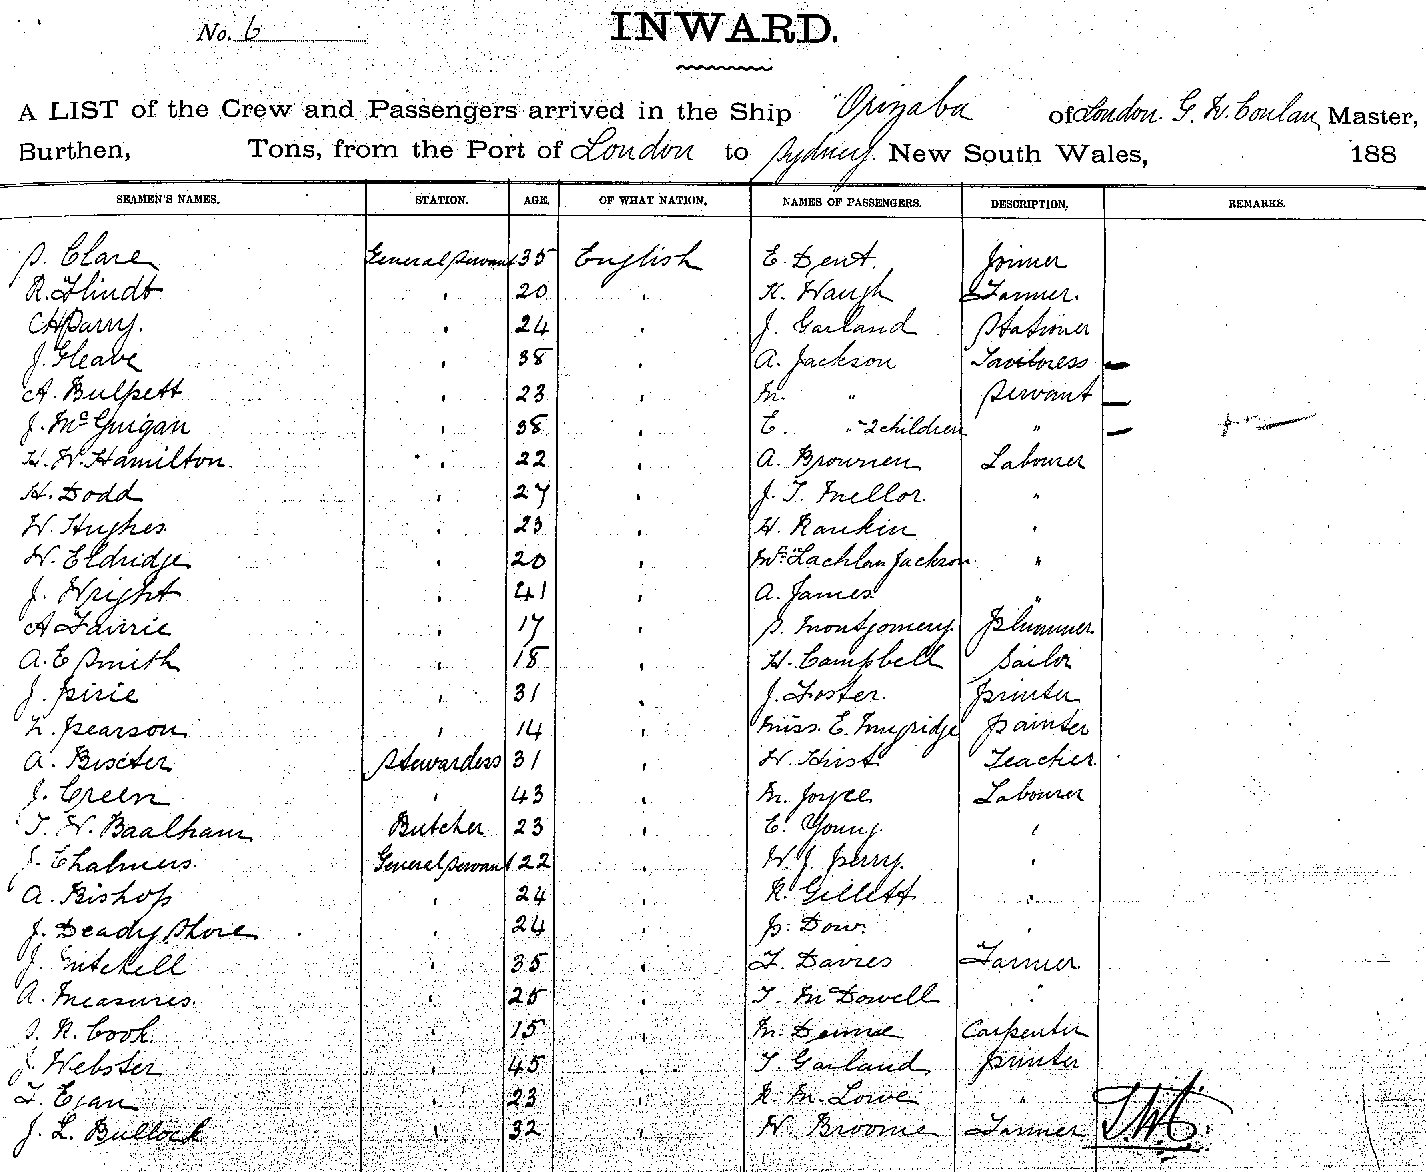 No. 6
INWARD.
A LIST of the Crew and Passengers arrived in the Ship Orizaba of London G. N. Conlan Master,
Burthen, Tons, from the Port of London to Sydney New South Wales, 188
SEAMEN'S NAMES. STATION. AGE. OF WHAT NATION. NAMES OF PASSENGERS. DESCRIPTION. REMARKS.
S. Clare General Servant 35 English E. Dent. Joiner
R. Flindt " 20 " K. Waugh Farmer.
C H Parry. " 24 " J. Garland Stationer
J. Gleave " 38 " A. Jackson
A. Bulpett " 23 " M. " Servant
J. McGuigan " 38 " E. " 2 children "
H. W. Hamilton. " 22 " A. Brownen Labourer
H. Dodd " 27 " J. T. Mellor "
W. Hughes " 23 " H. Rankin "
W. Eldridge " 20 " Lachlan Jackson "
J. Wright " 41 " A. James "
A Fairrie " 17 " S. Montgomery. Plummer
A. E Smith " 18 " H. Campbell Sailor
J. Pirie " 31 " J. Foster. Printer
L. Pearson " 14 " Miss. E. Mugridge Painter
A. Biseter Stewardess 31 " W. Hirst Teacher
J. Green " 43 " M. Joyce Labourer
T. W. Baalham Butcher 23 " E. Young "
J. Chalmers. General Servant 22 " W. J. Perry. "
A. Bishop " 24 " R. Gillett "
J. Deady Shore " 24 " P. Dow. "
J. Mitchell " 35 " F. Davies Farmer
A. Measures " 25 " T. McDowell "
S. R. Cook " 15 " M. Carpenter
J. Webster " 45 " T Garland Printer
T. Egan " 23 " R. M. Lowe "
J. L. Bullock " 32 " W Broome Farmer